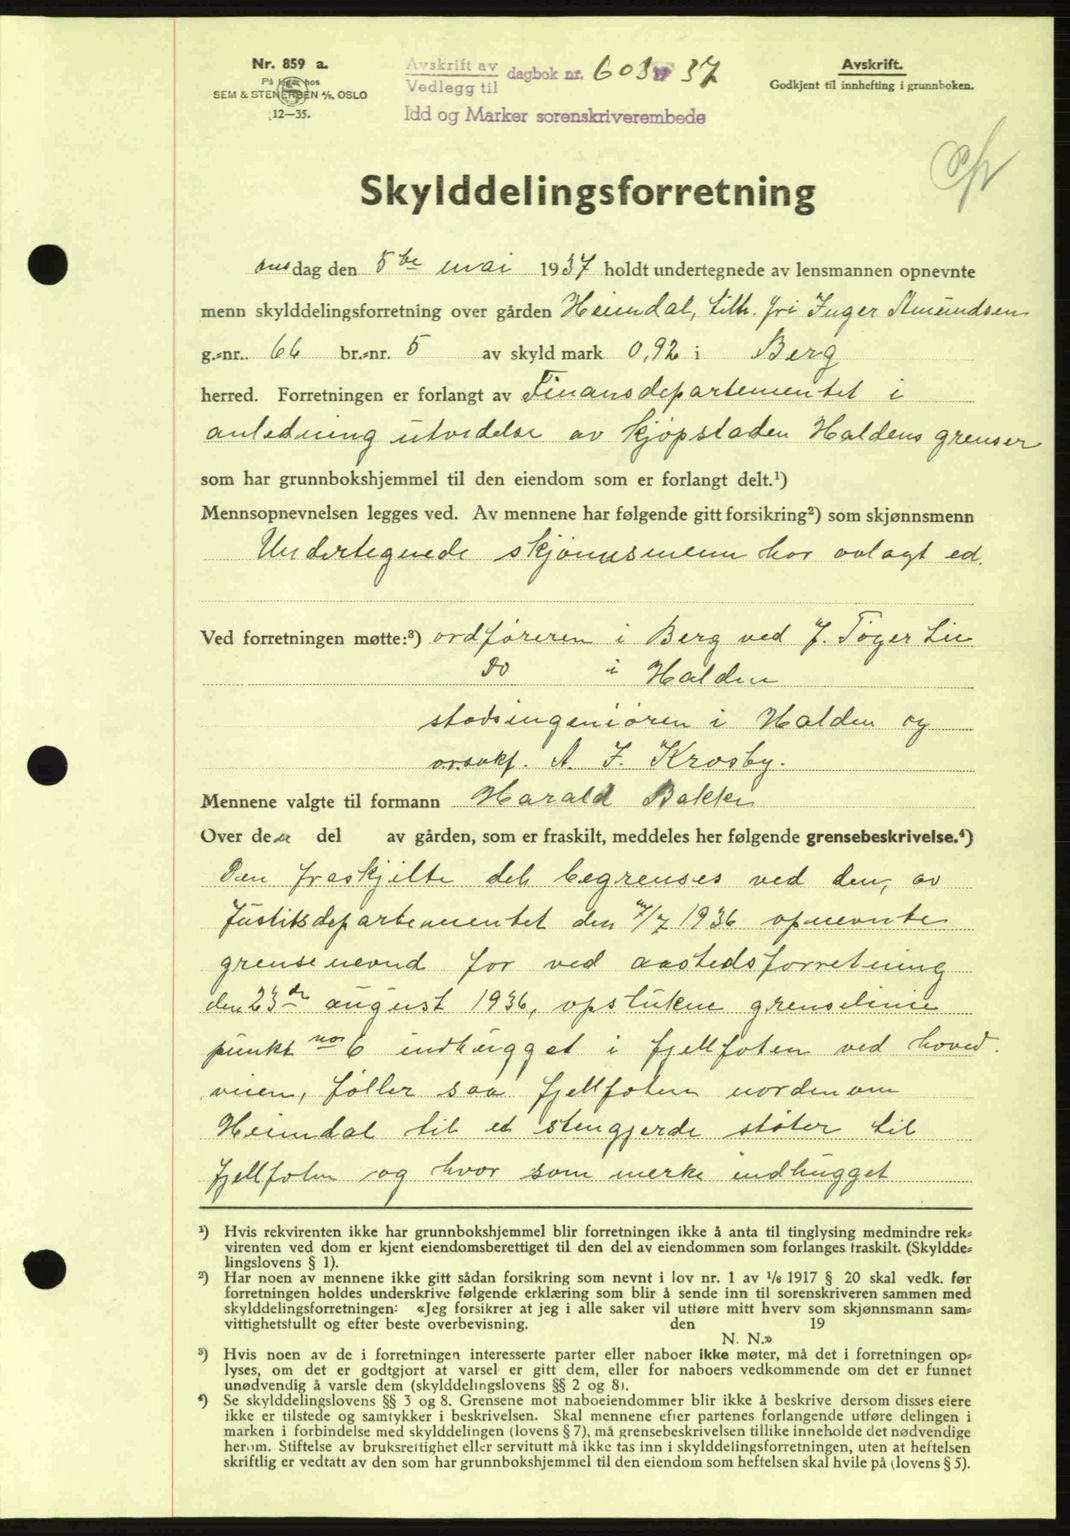 Nr. 859 a.
På lager hos
SEM & STENERSEN A/S, OSLO
12—35.
Avskrift av
Vedlegg til
dagbok nr. 603 37
Idd og Marker sorenskriverembede
Avskrift.
Godkjent til innhefting i grunnboken.
Skylddelingsforretning
onsdag den 5te mai 1937 holdt undertegnede av lensmannen opnevnte
menn skylddelingsforretning over gården Heimdal, tilh. fri Inger Amundsen
g.=nr. 66 br.=nr. 5 av skyld mark 0,92 i Berg
herred. Forretningen er forlangt av Finansdepartementet i
anledning utvidelse av kjøpstaden Haldens grenser
som har grunnbokshjemmel til den eiendom som er forlangt delt.¹)
Mennsopnevnelsen legges ved. Av mennene har følgende gitt forsikring²) som skjønnsmenn
Undertegnede skjønnsmenn har avlagt ed.
Ved forretningen møtte:³) ordføreren i Berg ved J. Tøger Lie
Do i Halden
stadsingeniøren i Halden og
o.r.sakf. A. F. Krosby.
Mennene valgte til formann Harald Bakke
Over de del av gården, som er fraskilt, meddeles her følgende grensebeskrivelse.⁴)
Den fraskjilte del begrenses ved den, av
Justitsdepartementet den /7 1936 opnevnte
grensenevnd for ved aastedsforretning
den 23de august 1936, opstukne grenselinie
punkt nor 6 indhugget i fjellfoten ved hoved-
veien, føller saa fjellfoten nordenom
Heimdal til et stengjerde støter til
fjellfoten og hvor som merke indhugget
¹) Hvis rekvirenten ikke har grunnbokshjemmel blir forretningen ikke å anta til tinglysing medmindre rek=
virenten ved dom er kjent eiendomsberettiget til den del av eiendommen som forlanges fraskilt. (Skyldde=
lingslovens § 1).
²) Har noen av mennene ikke gitt sådan forsikring som nevnt i lov nr. 1 av 1/6 1917 § 20 skal vedk. før
forretningen holdes underskrive følgende erklæring som blir å sende inn til sorenskriveren sammen med
skylddelingsforretningen: «Jeg forsikrer at jeg i alle saker vil utføre mitt hverv som skjønnsmann sam=
vittighetsfullt og efter beste overbevisning. den 19
N. N.»
³) Hvis noen av de i forretningen interesserte parter eller naboer ikke møter, må det i forretningen op=
lyses, om det er godtgjort at varsel er gitt dem, eller for naboers vedkommende om det er funnet
unødvendig å varsle dem (skylddelingslovens §§ 2 og 8).
⁴) Se skylddelingslovens §§ 3 og 8. Grensene mot naboeiendommer blir ikke å beskrive dersom disses eiere
ikke er tilstede og samtykker i beskrivelsen. Skal mennene efter partenes forlangende utføre delingen i
marken i forbindelse med skylddelingen (lovens § 7), må grensebeskrivelsen tillike inneholde det nødvendige
herom. Stiftelse av bruksrettighet eller servitutt må ikke tas inn i skylddelingsforretningen, uten at heftelsen
skriftlig er vedtatt av den som har grunnbokshjemmel til den eiendom som heftelsen skal hvile på (lovens § 5).